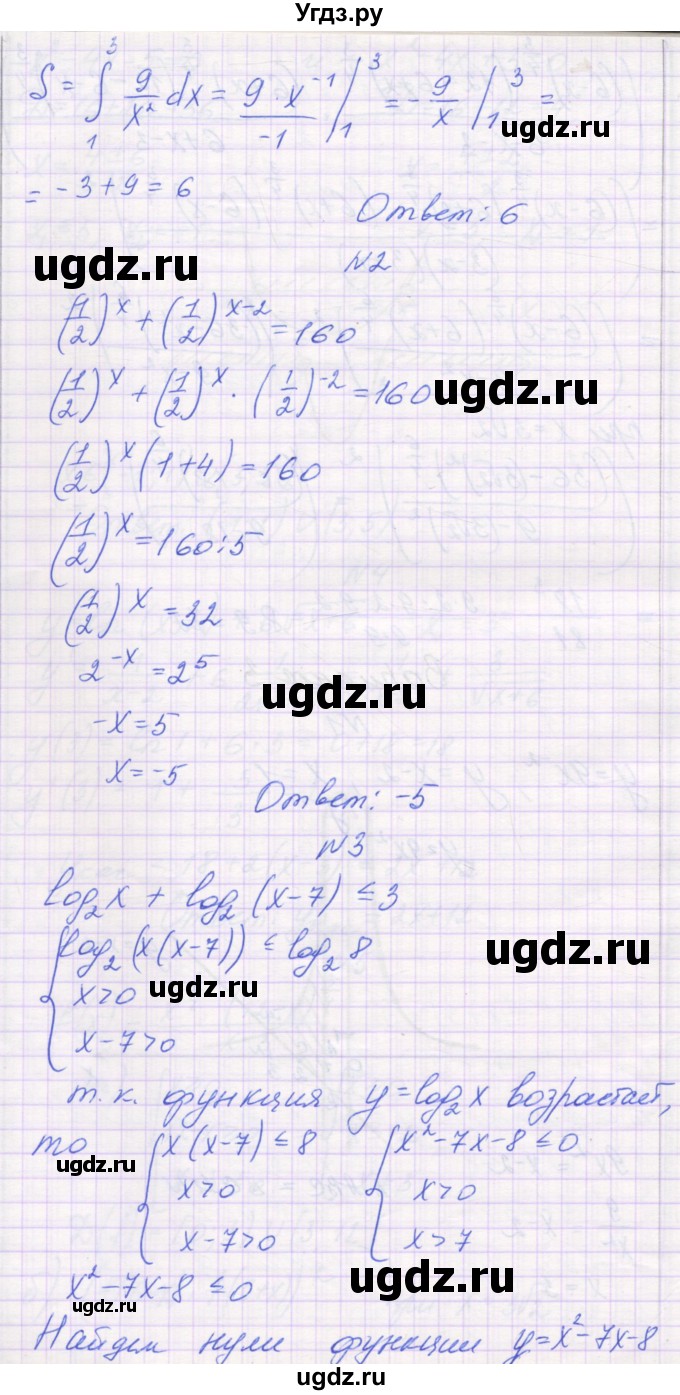 Угдз.ру
S = ∫₁³ 9/x² dx = 9·x⁻¹/-1 |₁³ = -9/x |₁³ =
ugdz.ru
= -3+9 = 6
Ответ: 6
ugdz.ru
N2
(1/2)^x + (1/2)^(x-2) = 160
(1/2)^x + (1/2)^x · (1/2)^-2 = 160
ugdz.ru
(1/2)^x (1+4) = 160
(1/2)^x = 160:5
(1/2)^x = 32
2^-x = 2^5
ugdz.ru
-x = 5
x = -5
Ответ: -5
N3
log₂x + log₂(x-7) ≤ 3
{ log₂(x(x-7)) ≤ log₂8
ugdz.ru
x>0
ugdz.ru
x-7>0
т.к. функция y=log₂x возрастает,
то { x(x-7) ≤ 8 { x²-7x-8 ≤ 0
ugdz.ru
x>0 x>0
x-7>0 x>7
x²-7x-8 ≤ 0
ugdz.ru
ugdz.ru
Найдем нули функции y=x²-7x-8
ugdz.ru